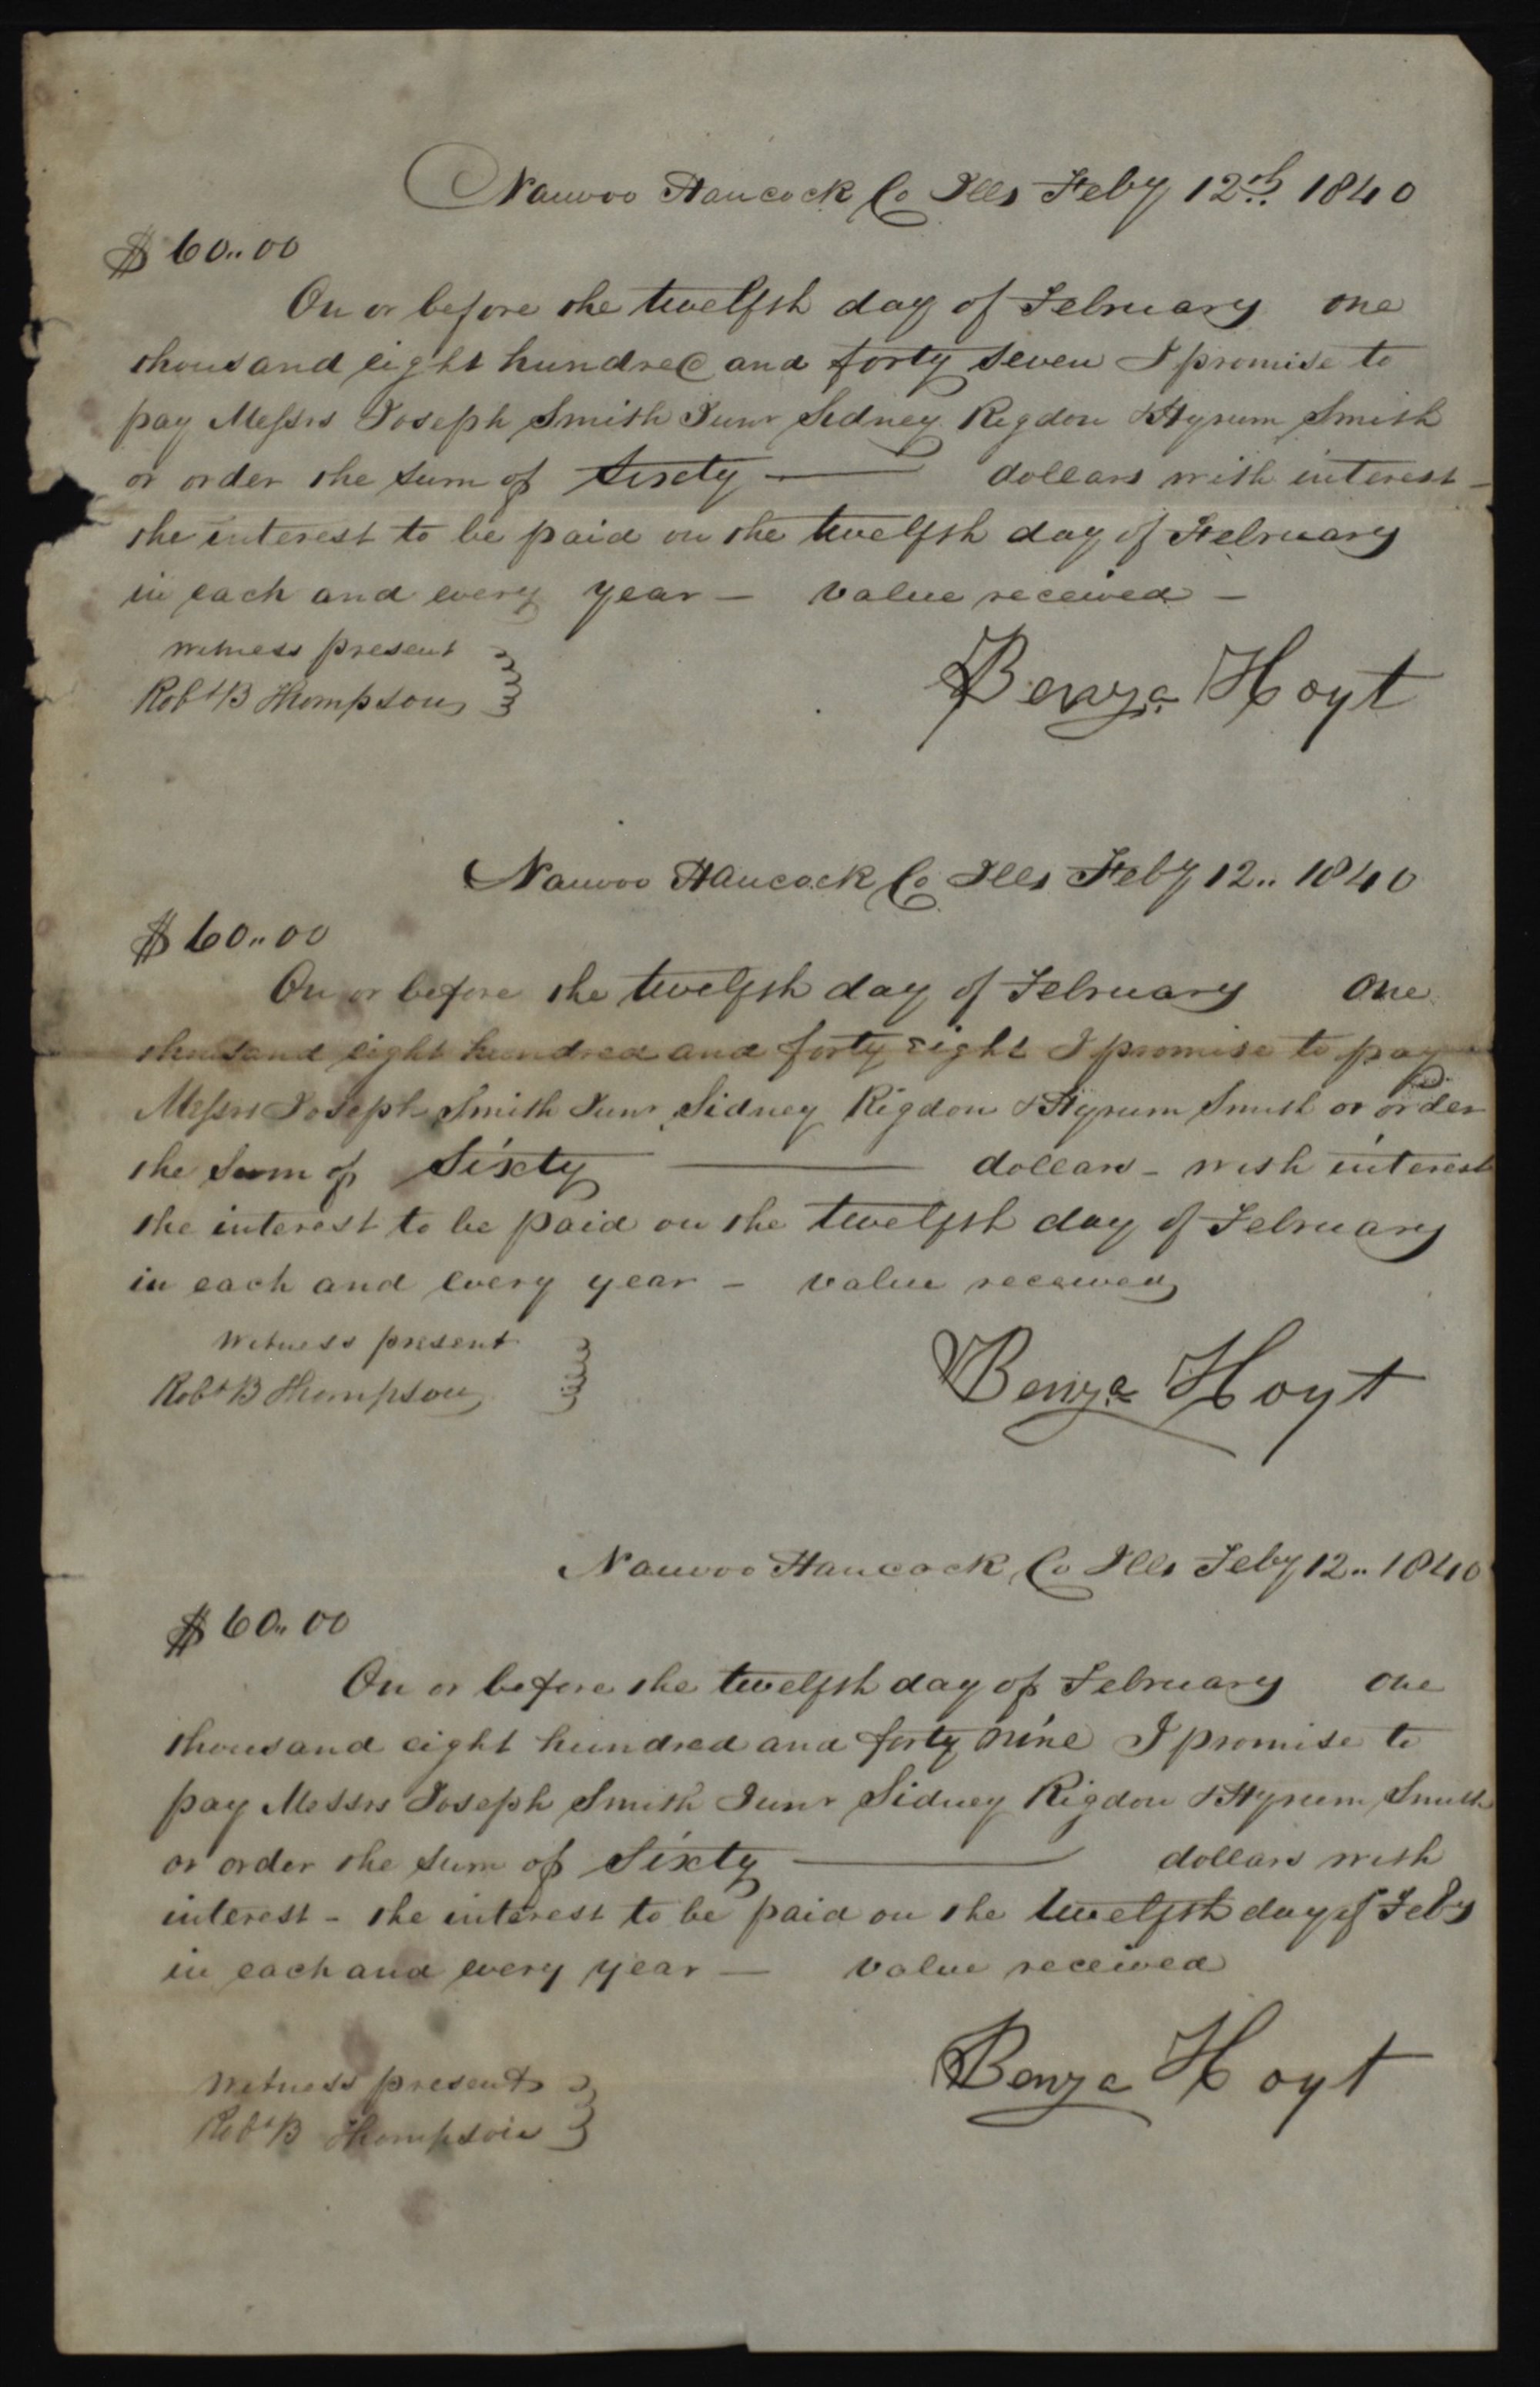 Nauvoo Hancock Co Ills Feby 12th 1840
$60..00
On or before the twelfth day of February one
thousand eight hundred and forty seven I promise to
pay Messrs Joseph Smith Junr Sidney Rigdon & Hyrum Smith
or order the sum of Sixty — dollars with interest –
the interest to be paid on the twelfth day of February
in each and every year – value received –
Witness present
Robt B Thompson
Benja Hoyt
Nauvoo Hancock Co Ills Feby 12.. 1840
$60..00
On or before the twelfth day of February One
thousand eight hundred and forty eight I promise to pay
Messrs Joseph Smith Junr Sidney Rigdon & Hyrum Smith or order
the Sum of Sixty — dollars – with interest
the interest to be paid on the twelfth day of February
in each and every year – value received
Witness present
Robt B Thompson
Benja Hoyt
Nauvoo Hancock Co Ills Feby 12.. 1840
$60..00
On or before the twelfth day of February one
thousand eight hundred and forty nine I promise to
pay Messrs Joseph Smith Junr Sidney Rigdon & Hyrum Smith
or order the sum of Sixty — dollars with
interest – the interest to be paid on the twelfth day of Feby
in each and every year — value received
Witness present
Robt B Thompson
Benja Hoyt